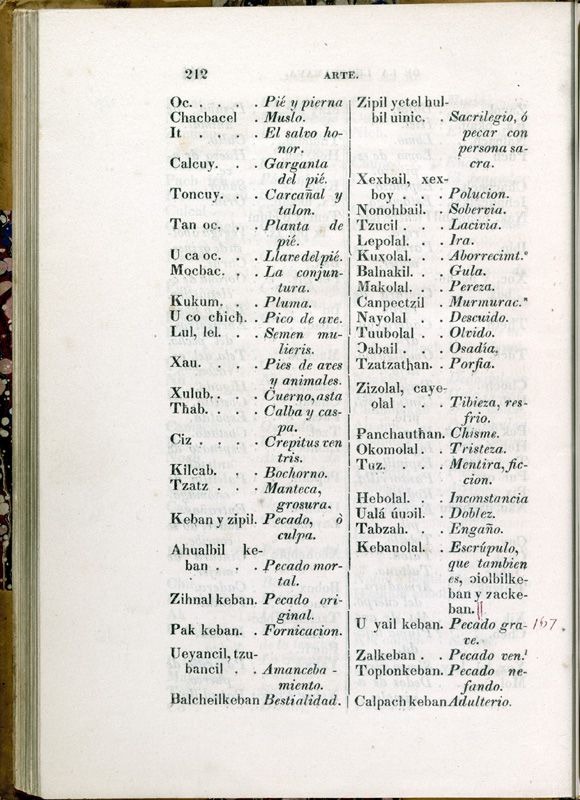 212
ARTE.
Oc. . . . . Pié y pierna
Chacbacel . Muslo.
It . . . . El salvo ho-
nor.
Calcuy. . . Garganta
del pié.
Toncuy. . . Carcañal y
talon.
Tan oc. . . Planta de
pié.
U ca oc. . . Llave del pié.
Mocbac. . . La conjun-
tura.
Kukum. . . Pluma.
U co chich. . Pico de ave.
Lul, lel. . . Semen mu-
lieris.
Xau. . . . . Pies de aves
y animales.
Xulub. . . Cuerno, asta
Thab. . . . Calba y cas-
pa.
Ciz . . . . Crepitus ven
tris.
Kilcab. . . Bochorno.
Tzatz . . . Manteca,
grosura.
Keban y zipil. Pecado, ò
culpa.
Ahualbil ke-
ban . . . Pecado mor-
tal.
Zihnal keban. Pecado ori-
ginal.
Pak keban. . Fornicacion.
Ueyancil, tzu-
bancil . . Amanceba-
miento.
Balcheilkeban Bestialidad.
Zipil yetel hul-
bil uinic. . Sacrilegio, ó
pecar con
persona sa-
cra.
Xexbail, xex-
boy . . . Polucion.
Nonohbail. . Sobervia.
Tzucil . . . Lacivia.
Lepolal. . . Ira.
Kuxolal. . . Aborrecimt.º
Balnakil. . . Gula.
Makolal. . . Pereza.
Canpectzil . Murmurac.ⁿ
Nayolal . . Descuido.
Tuubolal . . Olvido.
Ɔabail . . . Osadía,
Tzatzathan. . Porfia.
Zizolal, caye-
olal . . . Tibieza, res-
frio.
Panchauthan. Chisme.
Okomolal. . Tristeza.
Tuz. . . . Mentira, fic-
cion.
Hebolal. . . Inconstancia
Ualá úuɔil. . Doblez.
Tabzah. . . Engaño.
Kebanolal. . Escrúpulo,
que tambien
es, ɔiolbilke-
ban y zacke-
ban.
U yail keban. Pecado gra- 167
ve.
Zalkeban . . Pecado ven.¹
Toplonkeban. Pecado ne-
fando.
Calpach keban Adulterio.